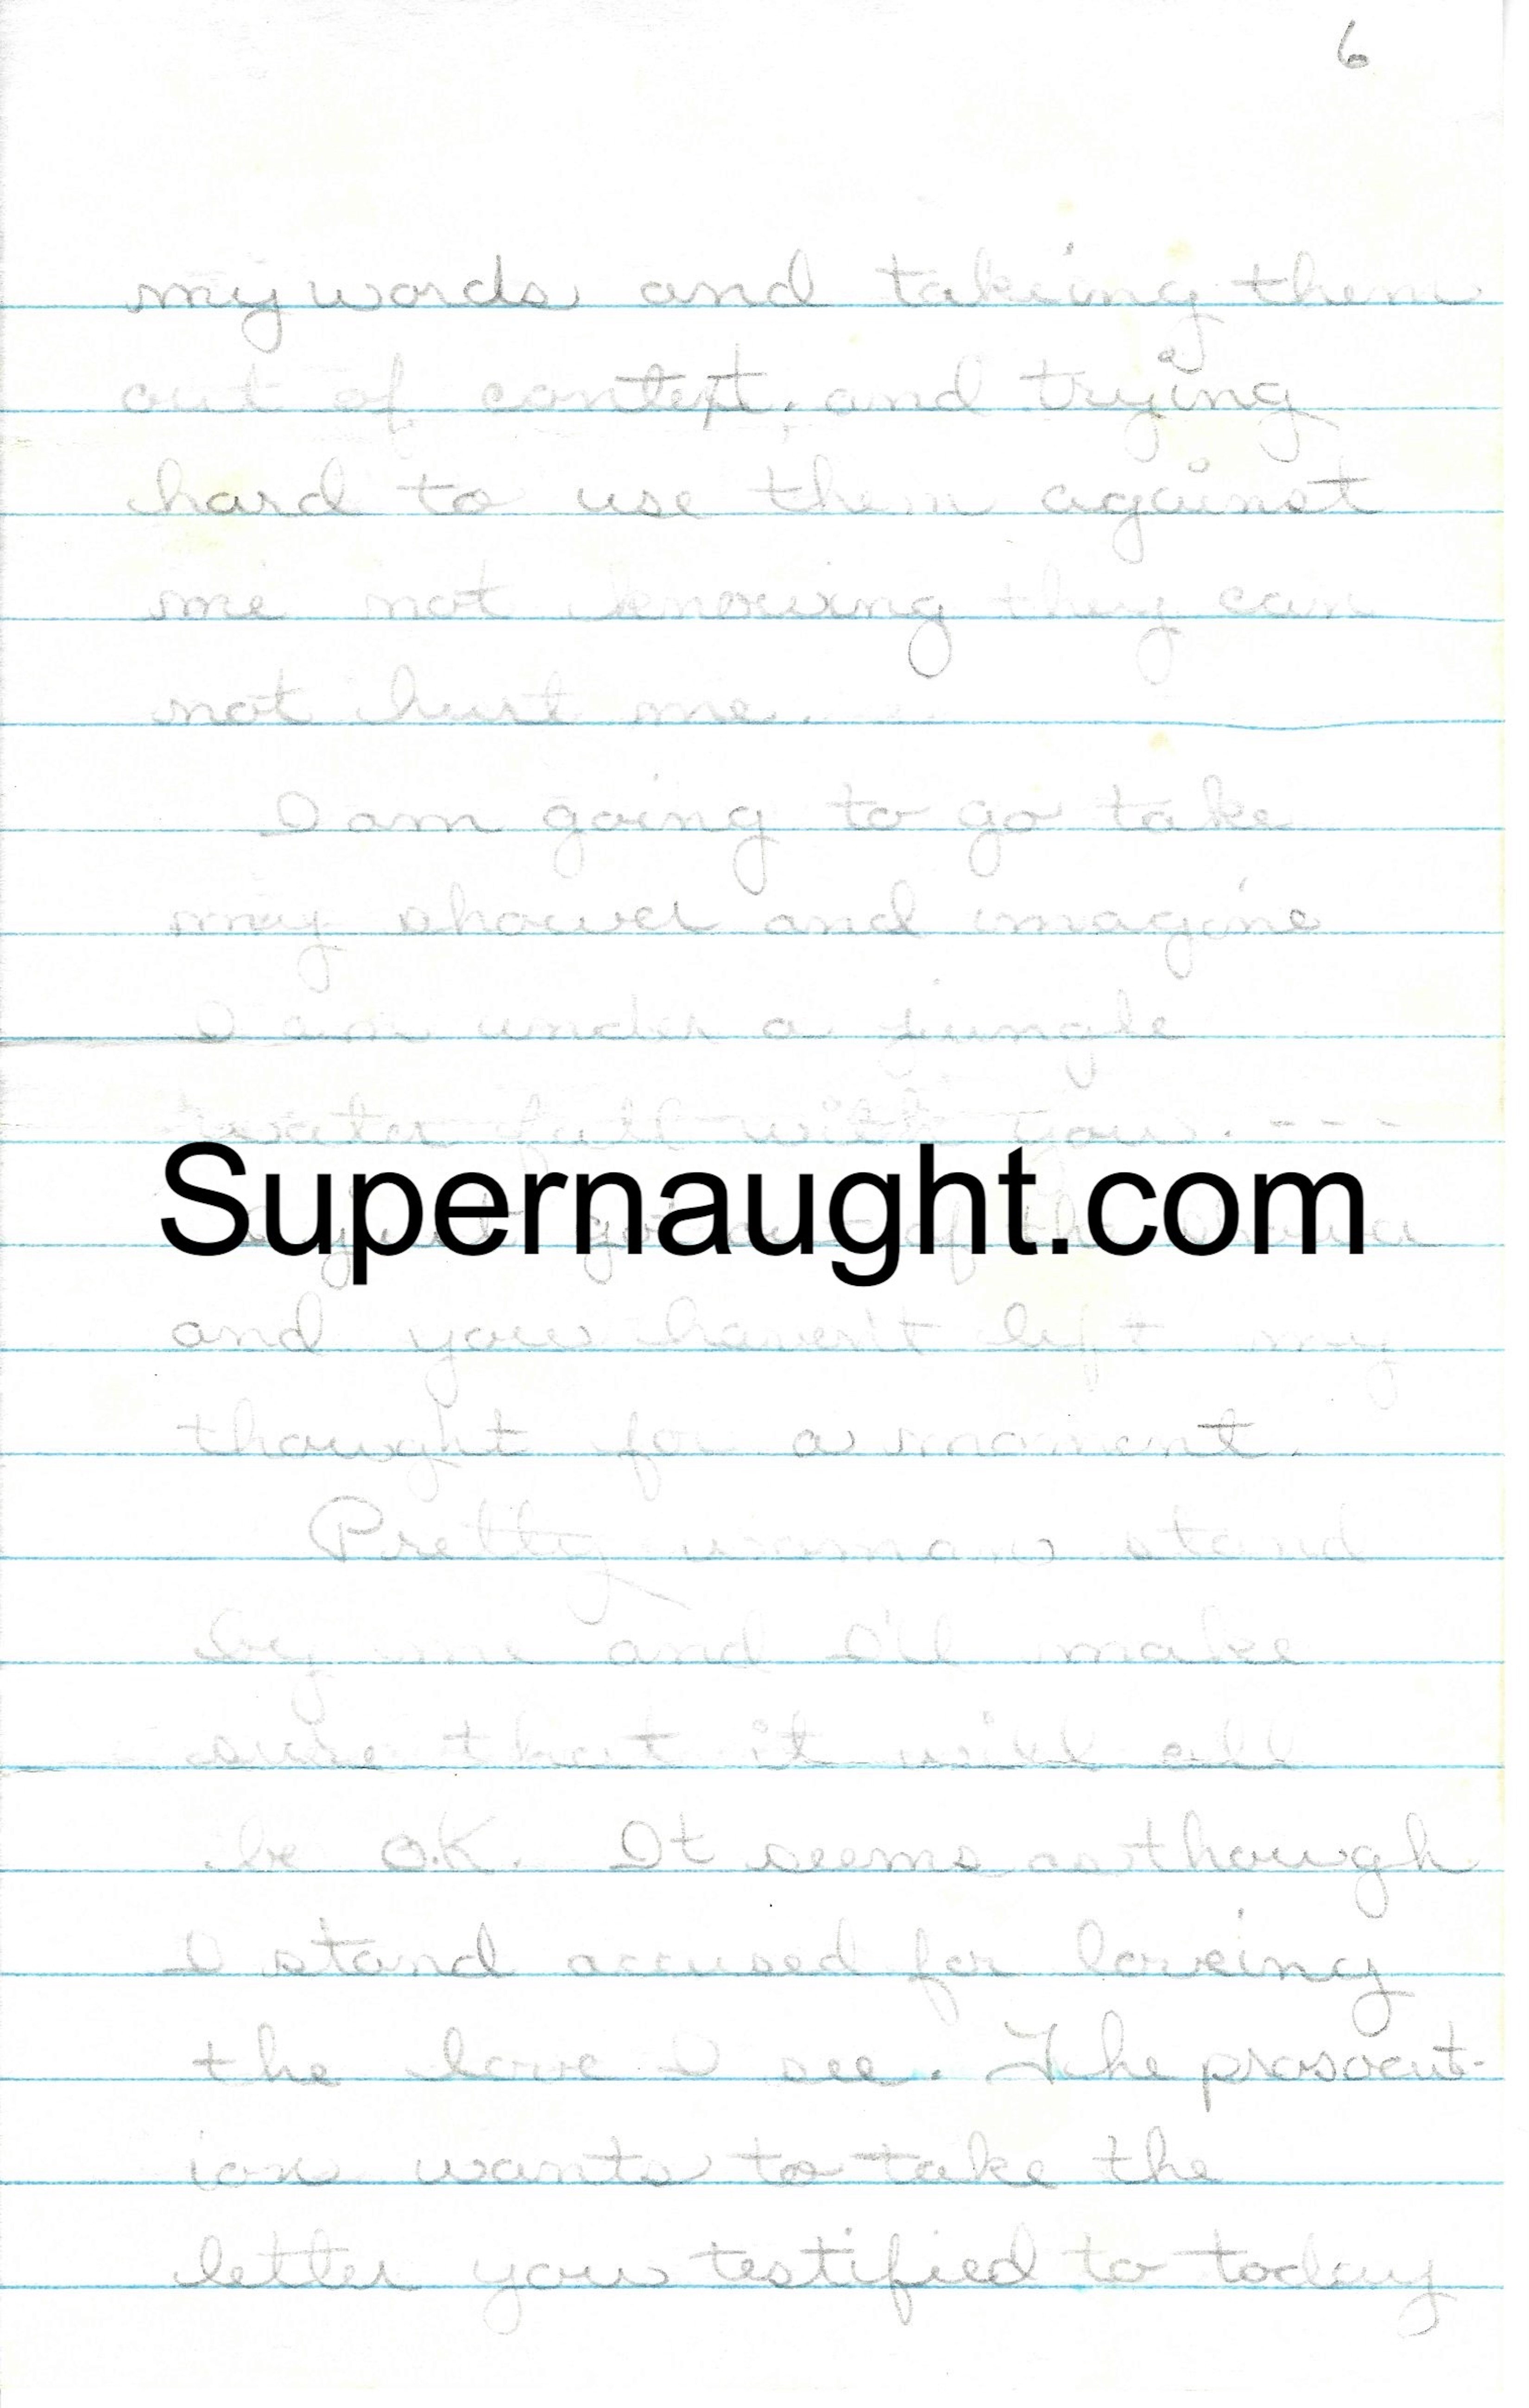 6
my words and takeing them
out of context, and trying
hard to use them against
me not knowing they can
not hurt me.
I am going to go take
my shower and imagine
I am under a jungle
water fall with you. - - -
Supernaught.com
I just got out of the shower
and you haven't left my
thought for a moment.
Pretty woman stand
by me and I'll make
sure that it will all
be O.K. It seems as though
I stand accused for loveing
the love I see. The prosocut-
ion wants to take the
letter you testified to today